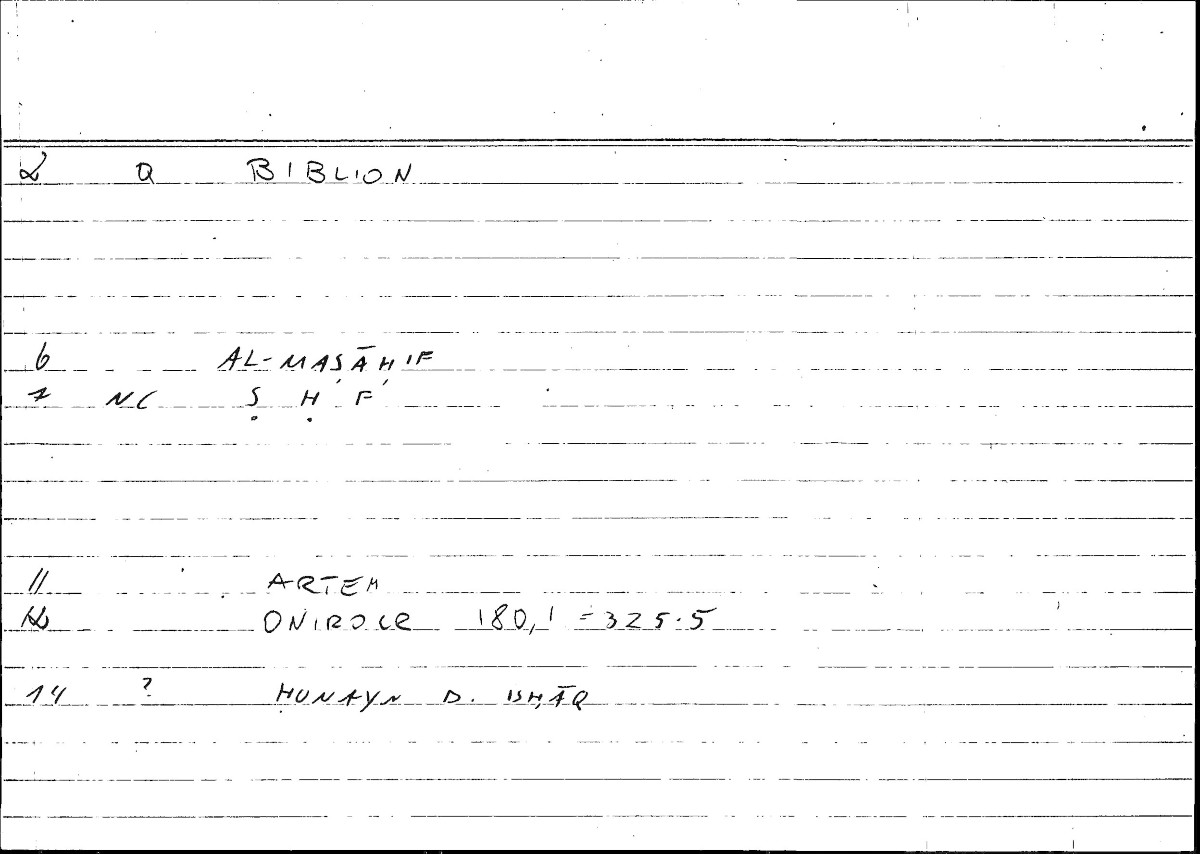 2 Q BIBLION
6 AL-MAṢĀḤIF
7 NC Ṣ Ḥ F
11 ARTEM
12 ONIROCR 180,1 = 325.5
14 ? ḤUNAYN B. ISḤĀQ